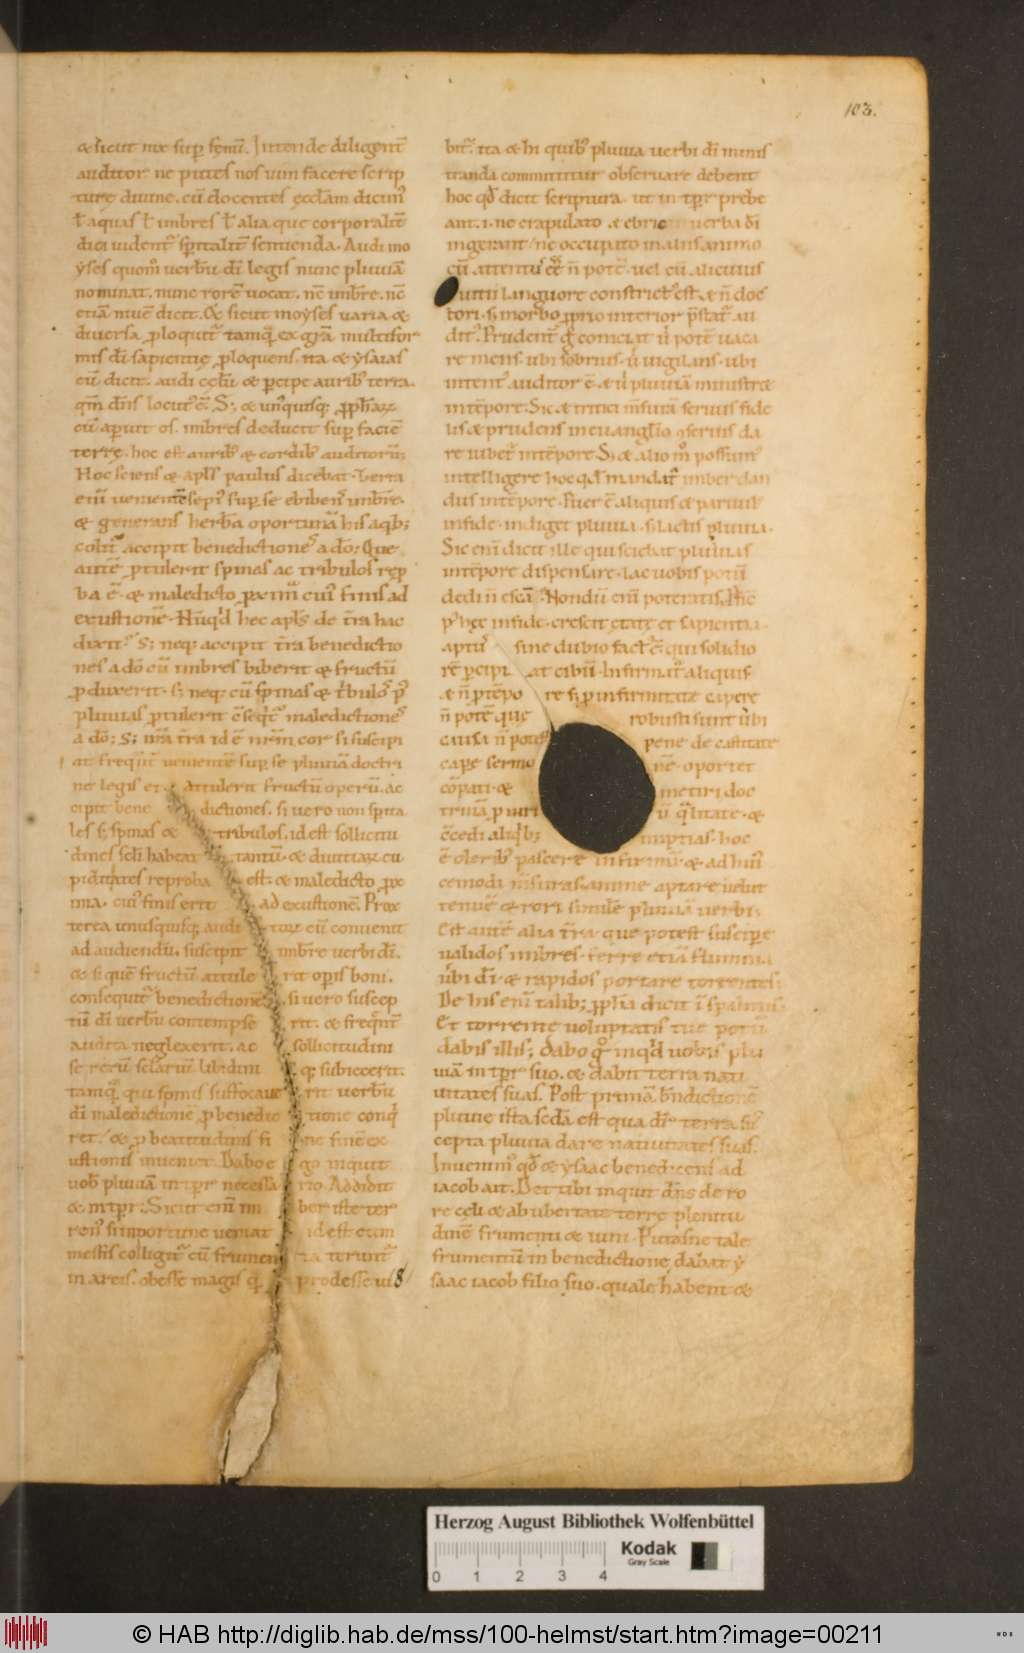 103.
& sicut nix sup fenū. Intende diligent̄
auditor ne putes nos uim facere scrip
ture diuine. cū docentes eccłam dicim᾿
ł aquas ł imbres ł alia que corporalit̄
dici uident᾿ spiritalit̄ sentienda. Audi mo
yses quom̄ uerbū dī legis nunc pluuiā
nominat. nunc rorē uocat. nc̄ imbrē. nc̄
etiā niuē dicit. & sicut moyses uaria &
diuersa ploquit᾿ tamq̄ ex gr̄a multifor
mis dī sapientię ploquens. ita & ysaias
cū dicit. audi cęlū & pcipe aurib᾿ terra.
qm̄ dn̄s locut᾿ ē. S; & un᾿quisq; pphaꝝ
cū apuit os. imbres deducit sup faciē
terre. hoc est aurib᾿ & cordib᾿ auditorū;
Hoc sciens & apłs paulus dicebat. terra
enī uenientē sepi᾿ sup se ebibens imbrē.
& generans herbā oportunā his a qb;
colit᾿ accipit benedictionē a dō; Que
autē ptulerit spinas ac tribulos rep
ba ē. & maledicto pxima cui᾿ finis ad
exustionē. Nūqd hec apłs de t̄ra hac
dixit? S; neq; accipit t̄ra benedictio
nes a dō cū imbres biberit & fructū
pduxerit. s; neq; cū spinas & t̄bulos p᾿
pluuias ptulerit c̄seqt᾿ maledictiones
a dō; S; n̄ra t̄ra id ē nr̄m cor si suscipi
at freqnt᾿ uenientē sup se pluuiā doctri
ne legis et attulerit fructū operū. ac
cipit bene dictiones. si uero non spita
les s; spinas & tribulos. id est sollicitu
dines scłi habeat tantū. & diuitiaꝝ cu
piditates reproba est. & maledicto pxi
ma. cui᾿ finis erit ad exustionē. Prop
terea unusquisq; audi toꝝ cū conuenit
ad audiendū. suscipit imbrē uerbi dī.
& si quē fructū attule rit opis boni.
consequit᾿ benedictionē. si uero suscep
tū dī uerbū contempse rit. & freqnt᾿
audita neglexerit. ac sollicitudini
se rerū scłariū libidini q; subiecerit.
tamq̄ qui spinis suffocaue rit uerbū
dī maledictione p benedic tione conq
ret. & p beatitudinis fi ne finē ex
ustionis inueniet. Dabo e go inquit
uob᾿ pluuiā in tpr necessa rio. Addidit
& in tpr. Sicut enī im ber iste ter
ren᾿ si inportune ueniat id est cum
messis colligit᾿ cū frumen ta terunt᾿
in areis. obesse magis q prodesse ui8
bit᾿. ita & hi quib᾿ pluuia uerbi dī minis
tranda committitur obseruare debent
hoc qd dicit scriptura. ut in tpr prebe
ant. i. ne crapulato & ebrio uerba dī
ingerant. ne occupato in aliis animo
cū attentus ēē n̄ potē. uel cū alicuius
uitii languore constrict᾿ est. & n̄ doc
tori. s; morbo pprio interior p̄stat᾿ au
dit᾿. Prudent᾿ g̊ coniciat u potē uaca
re mens. ubi sobrius. u uigilans. ubi
intent᾿ auditor ē. & u pluuiā ministre
in tēpore. Sic & tritici m̄surā seruus fide
lis & prudens in euanglio conseruis da
re iubet᾿ in tēpore. S; & alio m᾿ possum᾿
intelligere hoc qd mandat᾿ imber dan
dus in tēpore. Puer ē aliquis & paruul᾿
in fide. indiget pluuia. s. lactis pluuia.
Sic enī dicit ille qui sciebat pluuias
in tēpore dispensare. lac uobis potū
dedi n̄ escā. Nondū enī poteratis. Hic
p᾿ hęc in fide. crescit ętate et sapientia.
aptus sine dubio fact᾿ ē qui solido
rē pcipi at cibū. Infirmat᾿ aliquis
& n̄ p tēpo re s; p infirmitate capere
n̄ potē que robusti sunt ubi
causa n̄ potest pene de castitate
cape sermo nē. oportet
cōpati. & metiri doc
trinā p uiri ū qlitate. &
c̄cedi aliqb; nuptias. hoc
ē olerib᾿ pascere infirmū. & ad hui᾿
cemodi m̄suras animę aptare uelut
tenuē & rori similē pluuiā uerbi.
Est autē alia t̄ra que potest suscipere
ualidos imbres. ferre etiā flumina
ubi dī. & rapidos portare torrentes.
De his enī talib; pphīa dicit ī spalmis.
Et torrente uoluptatis tue potū
dabis illis; dabo g̊ inqd uobis plu
uiā in tpr suo. & dabit terra nati
uitates suas. Post primā bn̄dictionē
pluuie ista scd̄a est qua dat᾿ terra sus
cepta pluuia dare natiuitates suas.
Inuenim᾿ qd & ysaac benedicens ad
iacob ait. Det tibi inquit dn̄s de ro
re cęli & ab ubertate terre plenitu
dinē frumenti & uini. Putasne tale
frumentū in benedictione dabat y
saac iacob filio suo. quale habent &
Herzog August Bibliothek Wolfenbüttel
0 1 2 3 4
Kodak
Gray Scale
© HAB http://diglib.hab.de/mss/100-helmst/start.htm?image=00211